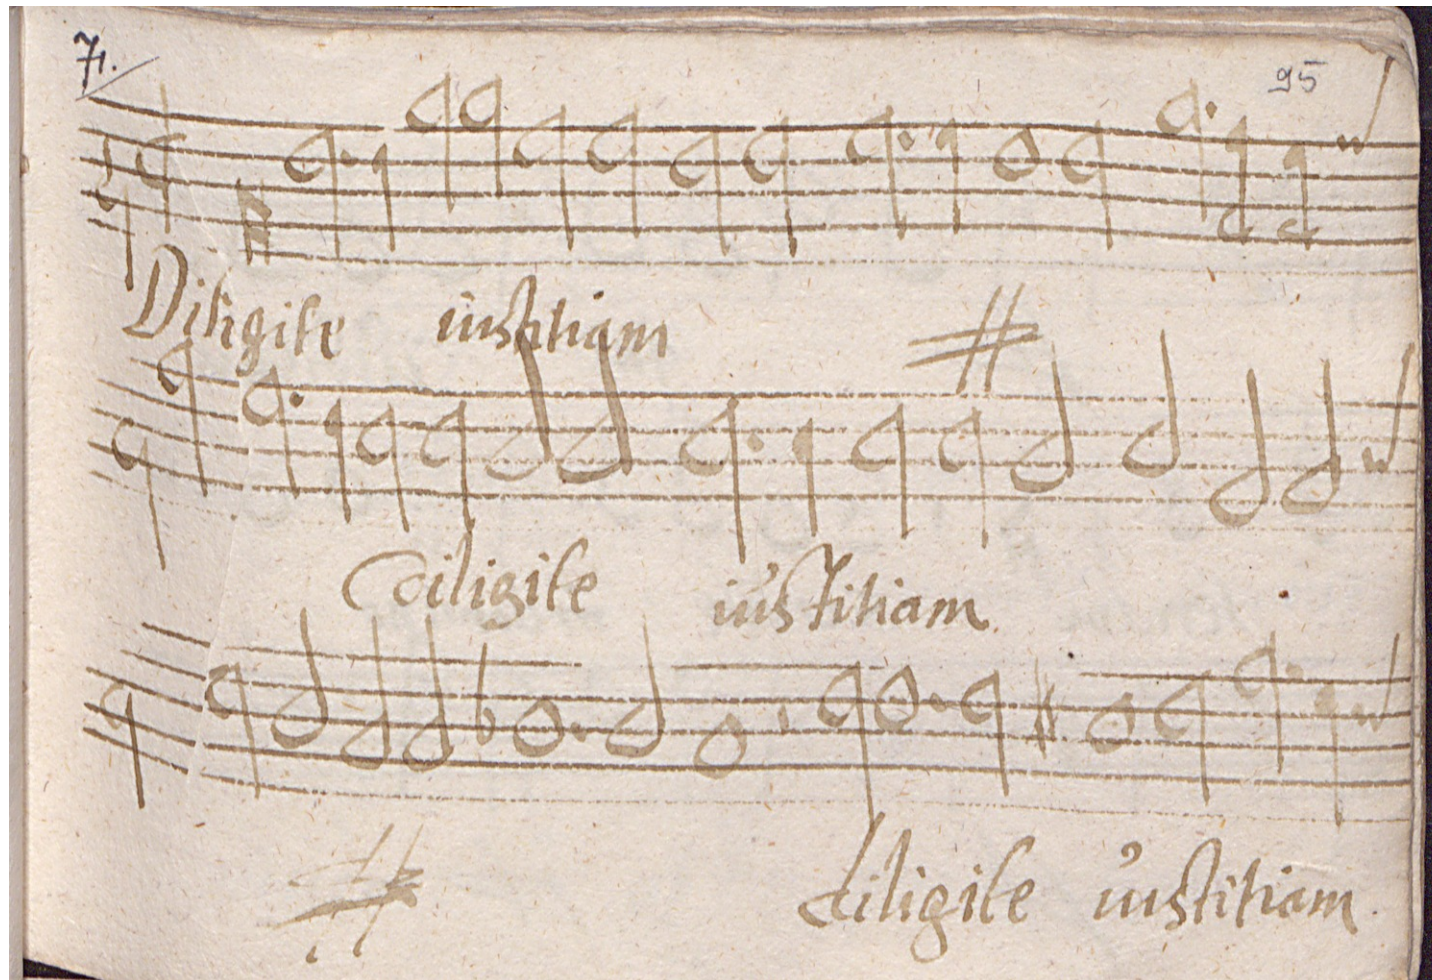 71. 95
Diligite iustitiam
diligite iustitiam
diligite iustitiam